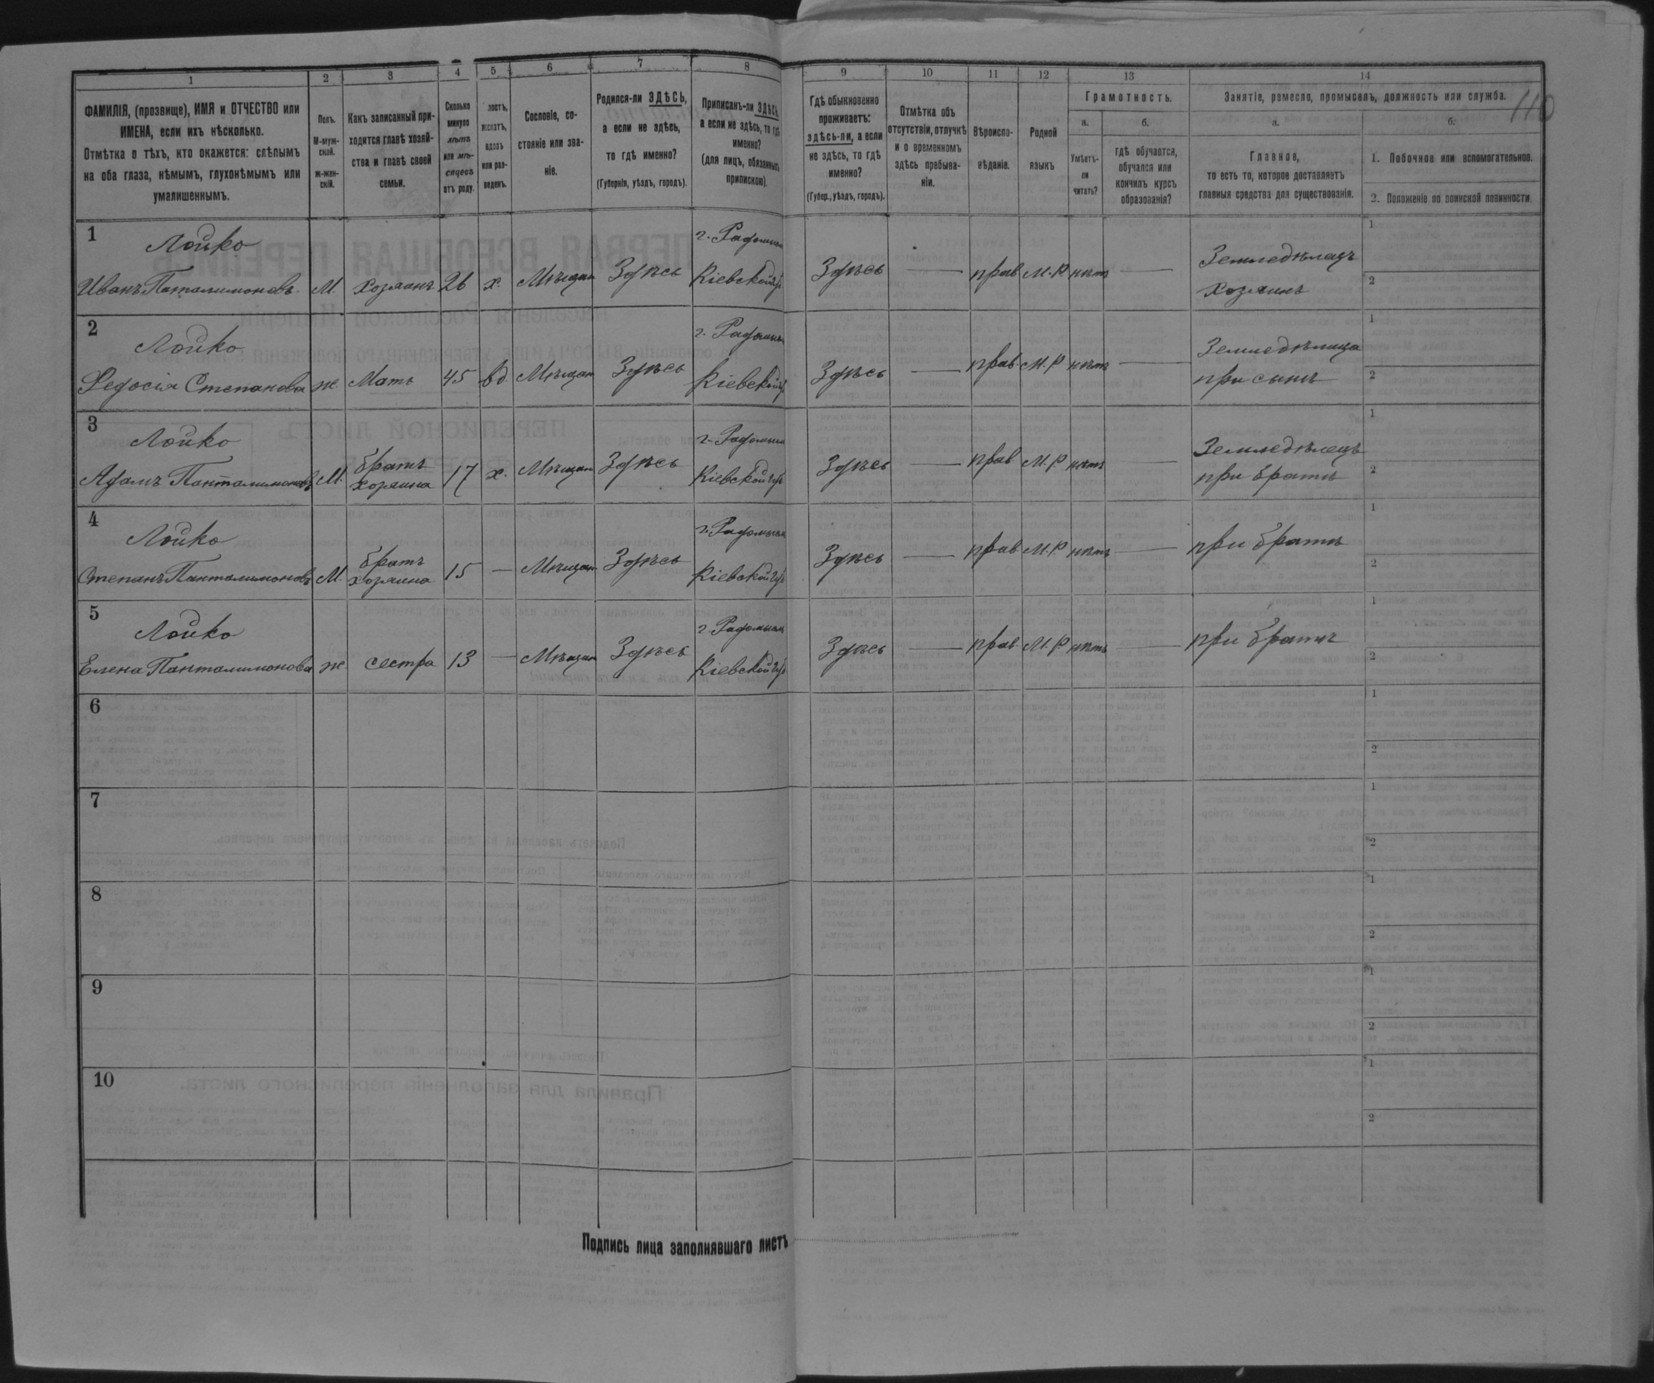 110
1 2 3 4 5 6 7 8 9 10 11 12 13 14
ФАМИЛІЯ, (прозвище), ИМЯ и ОТЧЕСТВО или
ИМЕНА, если ихъ нѣсколько.
Отмѣтка о тѣхъ, кто окажется: слѣпымъ
на оба глаза, нѣмымъ, глухонѣмымъ или
умалишеннымъ.
Полъ.
М-муж-
ской.
Ж-жен-
скій.
Какъ записанный при-
ходится главѣ хозяй-
ства и главѣ своей
семьи.
Сколько
минуло
лѣтъ
или мѣ-
сяцевъ
отъ роду.
Сословіе, со-
стояніе или зва-
ніе.
Родился-ли ЗДѢСЬ,
а если не здѣсь,
то гдѣ именно?
(Губернія, уѣздъ, городъ).
Приписанъ-ли ЗДѢСЬ,
а если не здѣсь, то гдѣ
именно?
(для лицъ, обязанныхъ
припиской).
Гдѣ обыкновенно
проживаетъ:
здѣсь-ли, а если
не здѣсь, то гдѣ
именно?
(Губер., уѣздъ, городъ).
Отмѣтка объ
отсутствіи, отлучкѣ
и о временномъ
здѣсь пребыва-
ніи.
Вѣроиспо-
вѣданіе.
Родной
языкъ
Грамотность.
а.
Умѣетъ-
ли
читать?
б.
гдѣ обучается,
обучался или
кончилъ курсъ
образованія?
Занятіе, ремесло, промыселъ, должность или служба.
а.
Главное,
то есть то, которое доставляетъ
главныя средства для существованія.
б.
1. Побочное или вспомогательное.
2. Положеніе по воинской повинности.
1 Лойко г. Радомысль Земледѣлецъ 1
Иванъ Панталимоновъ М хозяинъ 26 х. Мѣщан Здѣсь Кіевской губ Здѣсь — прав М.Р нѣтъ — хозяинъ 2
2 Лойко г. Радомысль Земледѣлица 1
Федосія Степанова ж Мать 45 вд Мѣщан Здѣсь Кіевской г Здѣсь — прав М.Р нѣтъ — при сынѣ 2
3 Лойко братъ г. Радомысль Земледѣлецъ 1
Адамъ Панталимоновъ М. хозяина 17 х. Мѣщан Здѣсь Кіевской губ Здѣсь — прав М.Р нѣтъ — при братѣ 2
4 Лойко братъ г. Радомысль при братѣ 1
Степанъ Панталимоновъ М. хозяина 15 — Мѣщан Здѣсь Кіевской губ Здѣсь — прав М.Р нѣтъ — 2
5 Лойко г. Радомысль при братѣ 1
Елена Панталимонова ж сестра 13 — Мѣщан Здѣсь Кіевской губ Здѣсь — прав М.Р нѣтъ — 2
6 1
2
7 1
2
8 1
2
9 1
2
10 1
2
Подпись лица заполнявшаго листъ